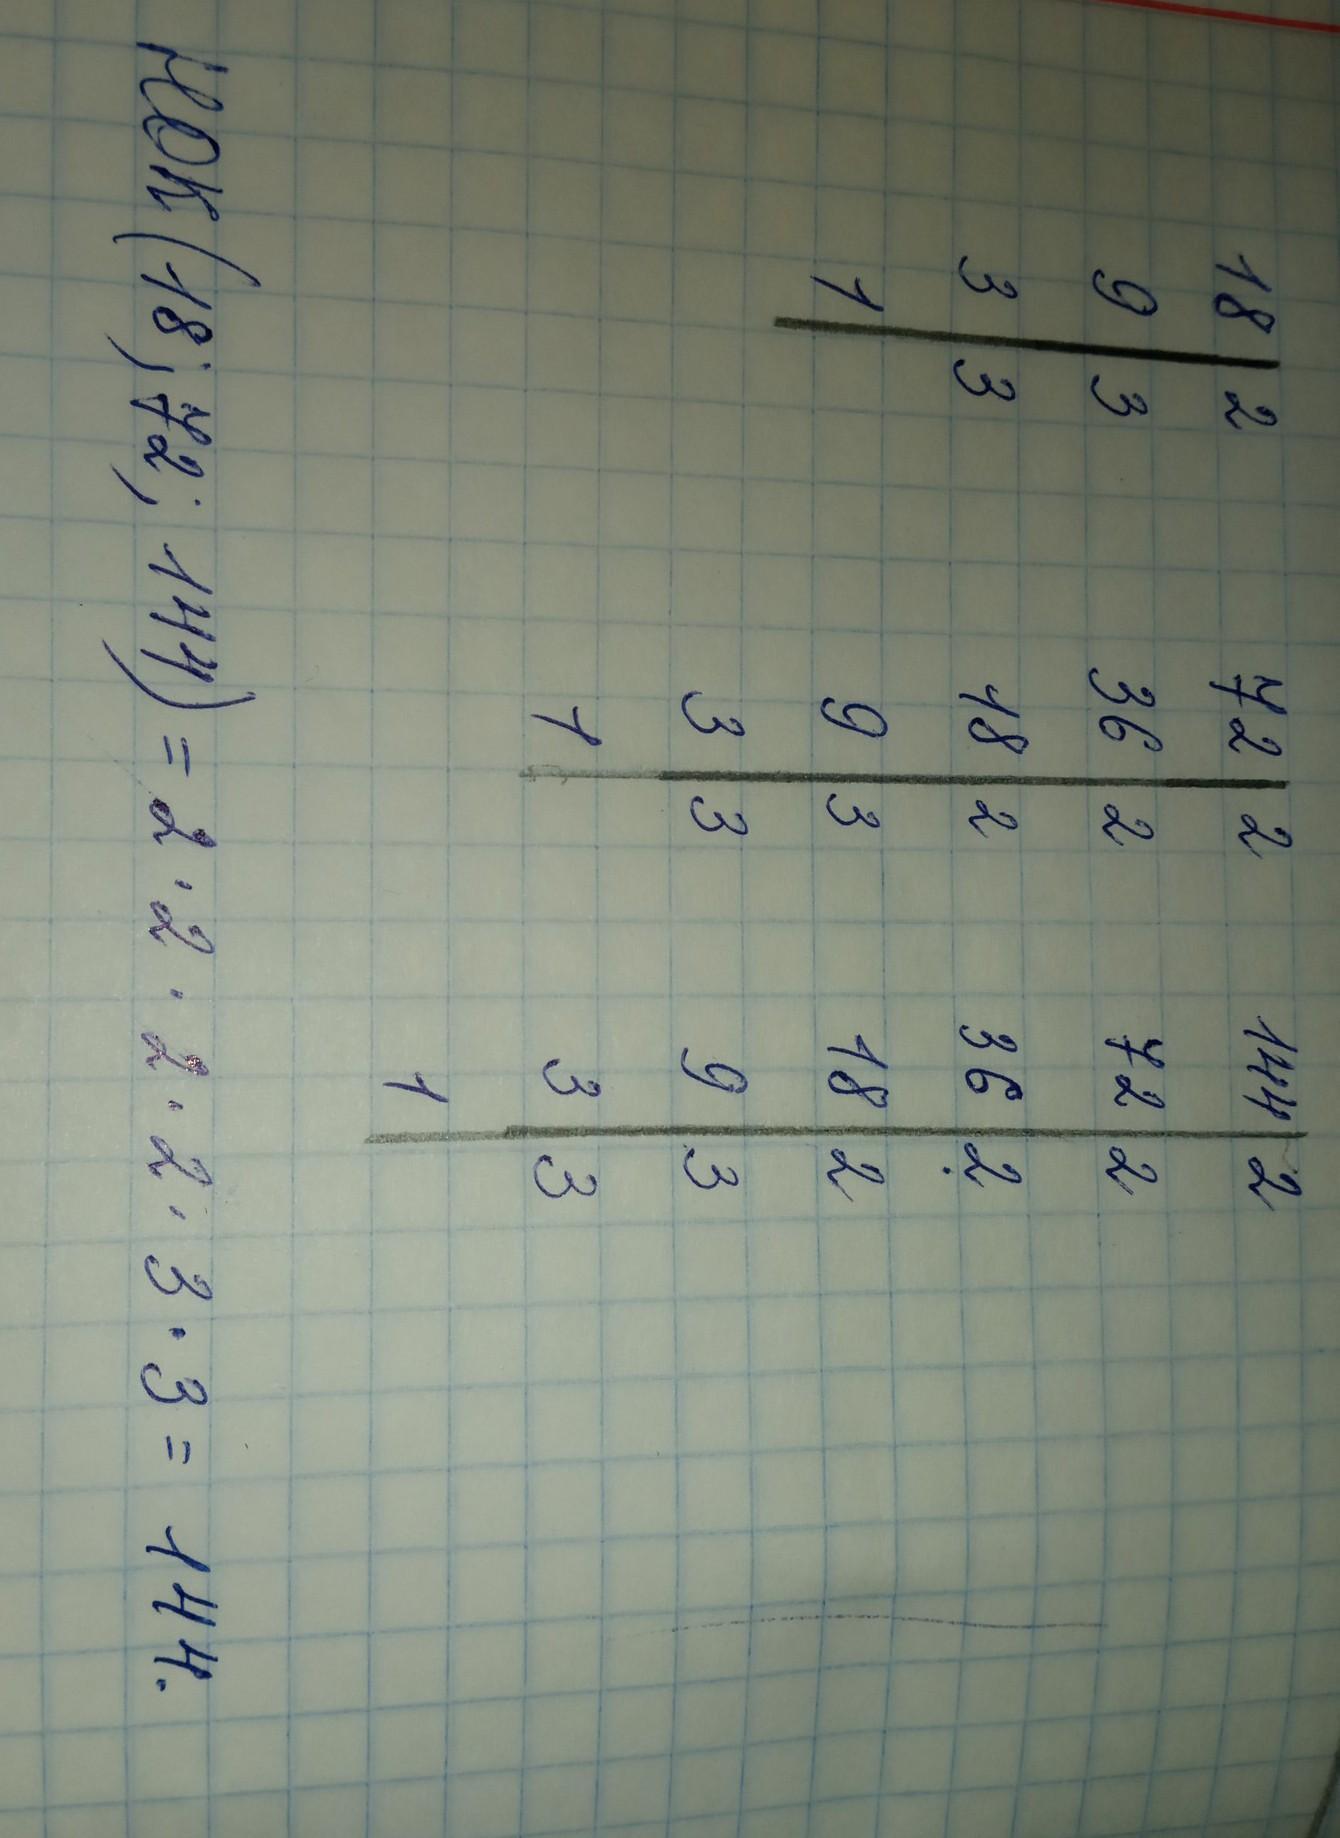 18 2 72 2 144 2
9 3 36 2 72 2
3 3 18 2 36 2
1 9 3 18 2
3 3 9 3
1 3 3
1
НОК (18; 72; 144) = 2 · 2 · 2 · 2 · 3 · 3 = 144.